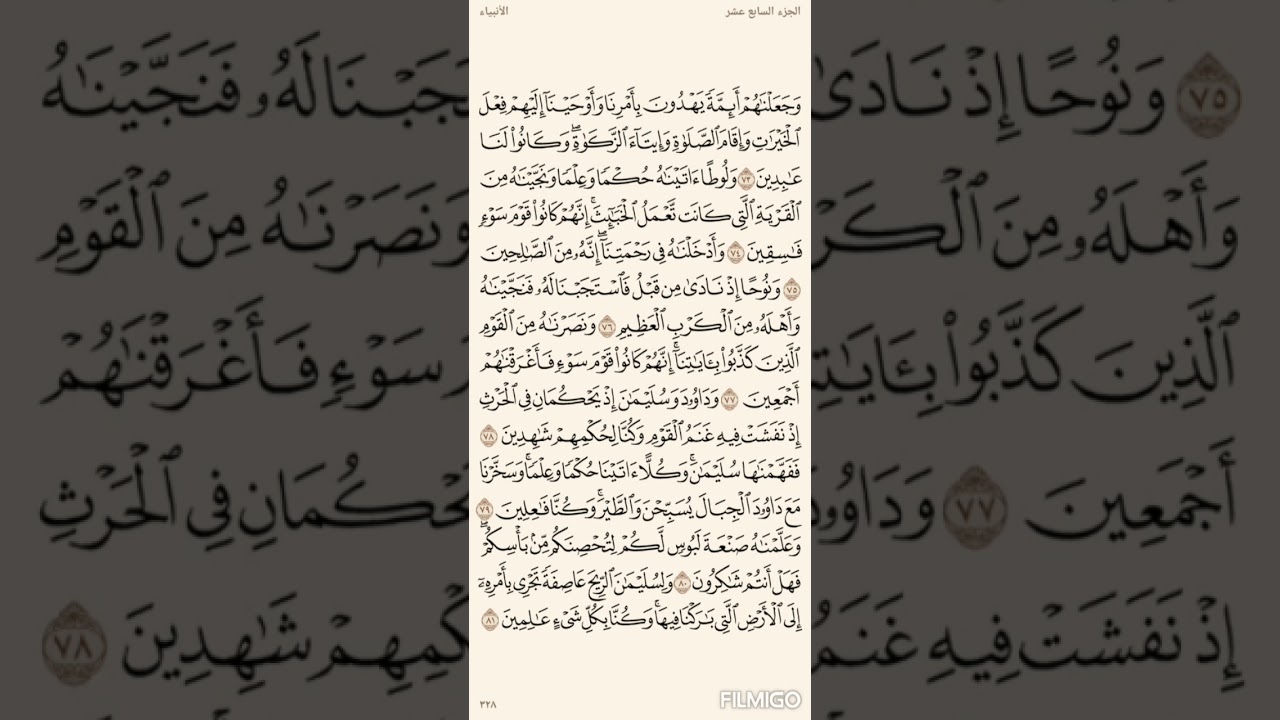 الجزء السابع عشر
الأنبياء
وَجَعَلْنَٰهُمْ أَئِمَّةً يَهْدُونَ بِأَمْرِنَا وَأَوْحَيْنَآ إِلَيْهِمْ فِعْلَ
ٱلْخَيْرَٰتِ وَإِقَامَ ٱلصَّلَوٰةِ وَإِيتَآءَ ٱلزَّكَوٰةِ ۖ وَكَانُوا۟ لَنَا
عَٰبِدِينَ ٧٣ وَلُوطًا ءَاتَيْنَٰهُ حُكْمًا وَعِلْمًا وَنَجَّيْنَٰهُ مِنَ
ٱلْقَرْيَةِ ٱلَّتِى كَانَت تَّعْمَلُ ٱلْخَبَٰٓئِثَ ۗ إِنَّهُمْ كَانُوا۟ قَوْمَ سَوْءٍ
فَٰسِقِينَ ٧٤ وَأَدْخَلْنَٰهُ فِى رَحْمَتِنَآ ۖ إِنَّهُۥ مِنَ ٱلصَّٰلِحِينَ
٧٥ وَنُوحًا إِذْ نَادَىٰ مِن قَبْلُ فَٱسْتَجَبْنَا لَهُۥ فَنَجَّيْنَٰهُ
وَأَهْلَهُۥ مِنَ ٱلْكَرْبِ ٱلْعَظِيمِ ٧٦ وَنَصَرْنَٰهُ مِنَ ٱلْقَوْمِ
ٱلَّذِينَ كَذَّبُوا۟ بِـَٔايَٰتِنَآ ۚ إِنَّهُمْ كَانُوا۟ قَوْمَ سَوْءٍ فَأَغْرَقْنَٰهُمْ
أَجْمَعِينَ ٧٧ وَدَاوُۥدَ وَسُلَيْمَٰنَ إِذْ يَحْكُمَانِ فِى ٱلْحَرْثِ
إِذْ نَفَشَتْ فِيهِ غَنَمُ ٱلْقَوْمِ وَكُنَّا لِحُكْمِهِمْ شَٰهِدِينَ ٧٨
فَفَهَّمْنَٰهَا سُلَيْمَٰنَ ۚ وَكُلًّا ءَاتَيْنَا حُكْمًا وَعِلْمًا ۚ وَسَخَّرْنَا
مَعَ دَاوُۥدَ ٱلْجِبَالَ يُسَبِّحْنَ وَٱلطَّيْرَ ۚ وَكُنَّا فَٰعِلِينَ ٧٩
وَعَلَّمْنَٰهُ صَنْعَةَ لَبُوسٍ لَّكُمْ لِتُحْصِنَكُم مِّنۢ بَأْسِكُمْ ۖ
فَهَلْ أَنتُمْ شَٰكِرُونَ ٨٠ وَلِسُلَيْمَٰنَ ٱلرِّيحَ عَاصِفَةً تَجْرِى بِأَمْرِهِۦٓ
إِلَى ٱلْأَرْضِ ٱلَّتِى بَٰرَكْنَا فِيهَا ۚ وَكُنَّا بِكُلِّ شَىْءٍ عَٰلِمِينَ ٨١
٣٢٨
FILMIGO